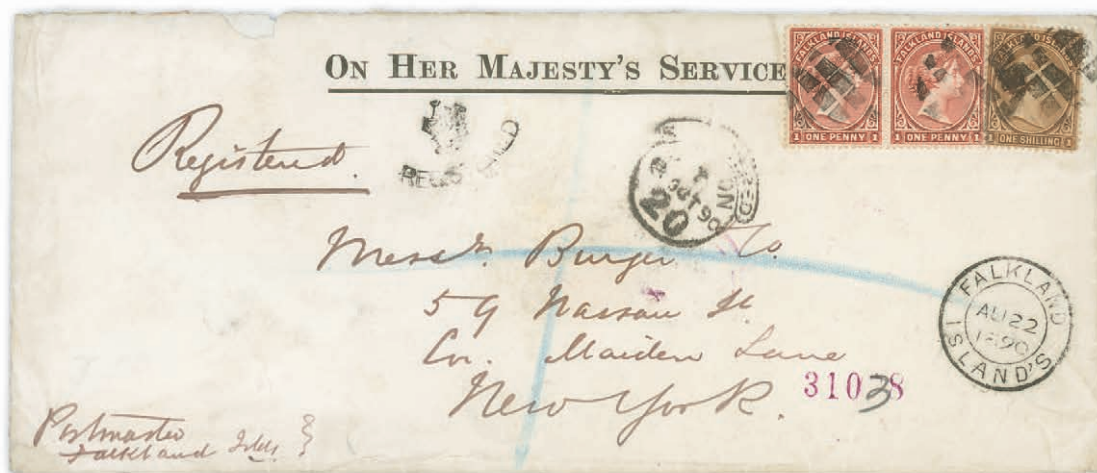 ON HER MAJESTY'S SERVICE
FALKLAND ISLANDS
1 ONE PENNY 1
FALKLAND ISLANDS
1 ONE PENNY 1
FALKLAND ISLANDS
1 ONE SHILLING 1
Registered.
REGISTERED
OCT 90
20
Messrs. Burger Co.
59 Nassau St.
Cor. Maiden Lane
New York.
FALKLAND
AU 22
1890
ISLAND'S
31038
Postmaster
Falkland Isles